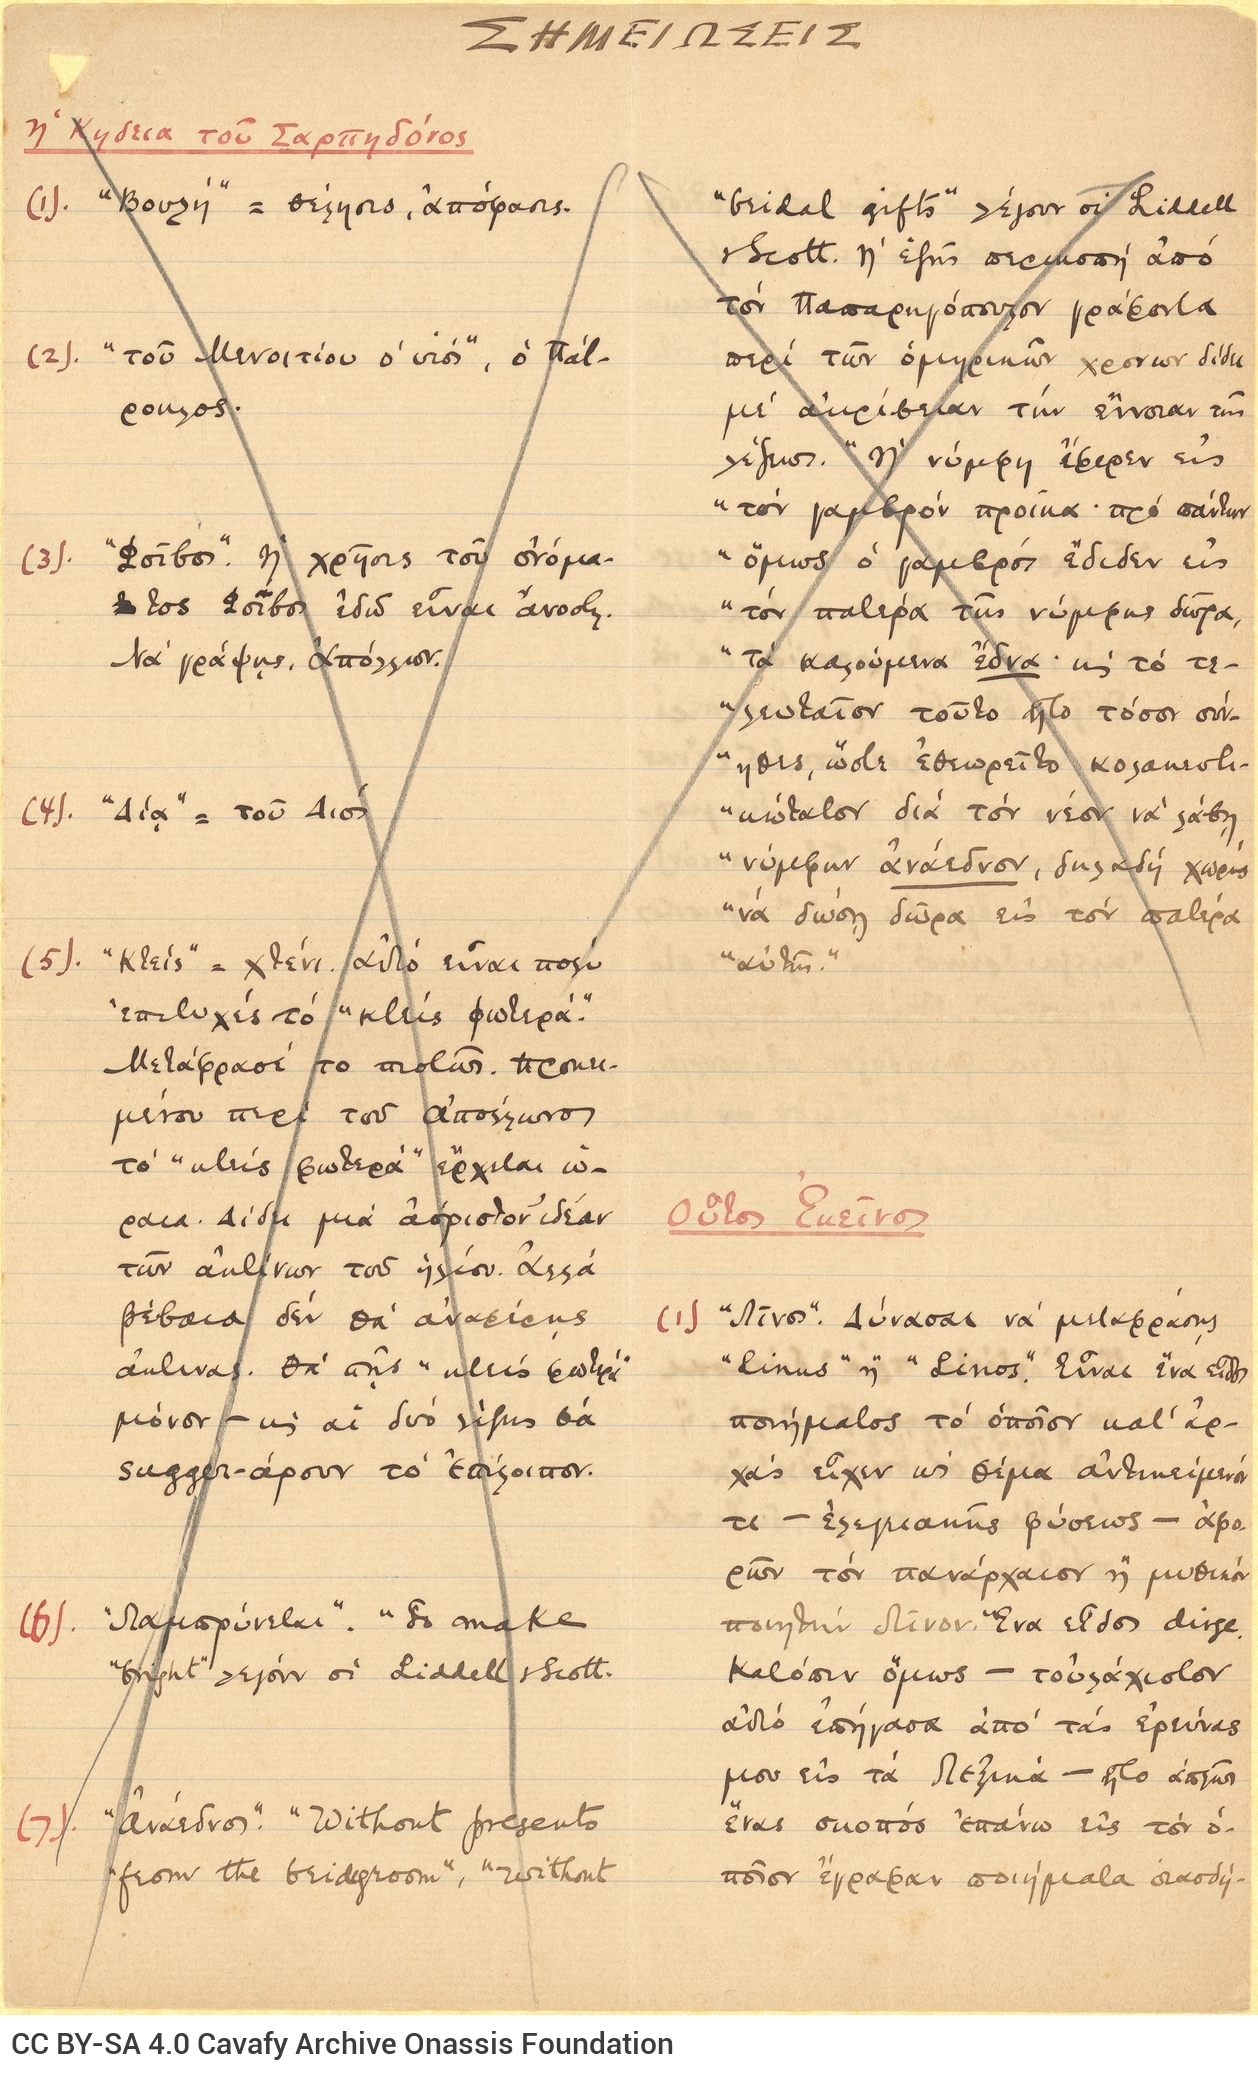 ΣΗΜΕΙΩΣΕΙΣ
Ἡ Κηδεια τοῦ Σαρπηδόνος
(1). "Βουλή" = θέλησις, ἀπόφασις.
(2). "τοῦ Μενοιτίου ὁ υἱός", ὁ Πάτ-
ροκλος.
(3). "Φοῖβος". Ἡ χρῆσις τοῦ ὀνόμα-
τος Φοῖβος ἐδῶ εἶναι ἄνοστη.
Νά γράψῃς, Ἀπόλλων.
(4). "Δίᾳ" = τοῦ Διός
(5). "Κτείς" = χτένι. Αὐτό εἶναι πολύ
ἐπιτυχές τό "κτείς φωτερά".
Μετάφρασέ το πιστῶς. Προκει-
μένου περί τοῦ Ἀπόλλωνος
τό "κτείς φωτερά" ἔρχεται ὡ-
ραια. Δίδει μιά ἀόριστον ἰδέαν
τῶν ἀκτίνων τοῦ ἡλίου. Ἀλλά
βέβαια δέν θά ἀναφέρῃς
ἀκτινας. Θά πῇς "κτείς φωτερά"
μόνον – κι αἱ δυό λέξεις θά
sugger-άρουν τό ἐπίλοιπον.
(6). "Λαμπρύνεται". "To make
"bright" λεγόυν οἱ Liddell & Scott.
(7). "Ἀνάεδνος". "Without presents
"from the bridegroom", "without
"bridal gifts" λέγουν οἱ Liddell
& Scott. Ἡ ἑξῆς περικοπή ἀπό
τόν Παπαρηγόπουλον γράφοντα
περί τῶν ὁμηρικῶν χρονων δίδει
μέ ἀκρίβειαν τήν ἔννοιαν τῆς
λέξεως. "Ἡ νύμφη ἔφερεν εἰς
"τόν γαμβρόν προῖκα· πρό πάντων
"ὅμως ὁ γαμβρός ἔδιδεν εἰς
"τόν πατέρα τῆς νύμφης δῶρα,
"τά καλούμενα ἕδνα· κι τό τε-
"λευταῖον τοῦτο ἦτο τόσον σύν-
"ηθες, ὥστε ἐθεωρεῖτο κολακευτι-
"κώτατον διά τόν νέον νά λάβῃ
"νύμφην ἀνάεδνον, δηλαδή χωρίς
"νά δώσῃ δῶρα εἰς τόν πατέρα
"αὐτῆς."
Οὗτος Ἐκεῖνος
(1) "Λῖνος". Δύνασαι νά μεταφράσῃς
"Linus" ἤ "Linos". Εἶναι ἕνα εἶδος
ποιήματος τό ὁποῖον κατ' ἀρ-
χάς εἶχεν ὡς θέμα ἀντικείμενόν
τι – ἐλεγειακῆς φύσεως – ἀφο-
ρῶν τόν πανάρχαιον ἤ μυθικόν
ποιητήν Λῖνον. Ἕνα εἶδος dirge.
Κατόπιν ὅμως – τοὐλάχιστον
αὐτό ἐπήγασα ἀπό τάς ἐρεύνας
μου εἰς τά Λεξικά – ἦτο ἁπλῶς
ἕνας σκοπός ἐπάνω εἰς τόν ὁ-
ποῖον ἔγραφαν ποιήματα οιασδή-
CC BY-SA 4.0 Cavafy Archive Onassis Foundation